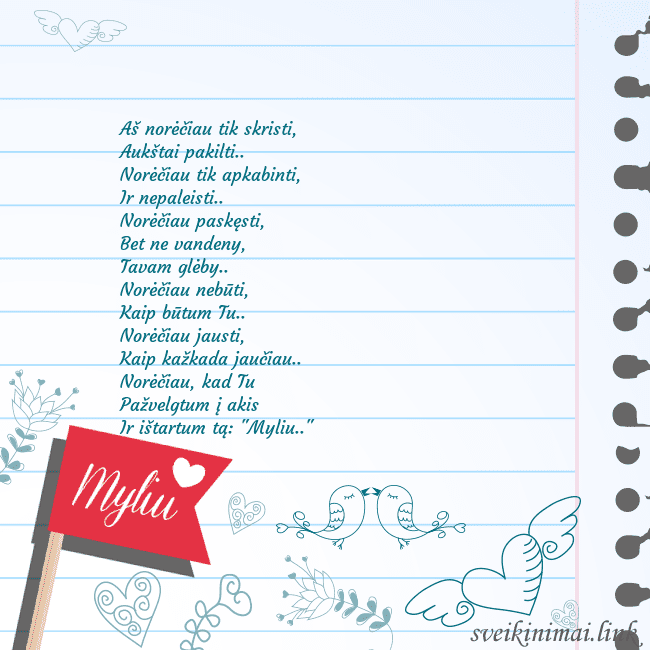 Aš norėčiau tik skristi,
Aukštai pakilti..
Norėčiau tik apkabinti,
Ir nepaleisti..
Norėčiau paskęsti,
Bet ne vandeny,
Tavam glėby..
Norėčiau nebūti,
Kaip būtum Tu..
Norėčiau jausti,
Kaip kažkada jaučiau..
Norėčiau, kad Tu
Pažvelgtum į akis
Ir ištartum tą: "Myliu.."
Myliu
sveikinimai.link